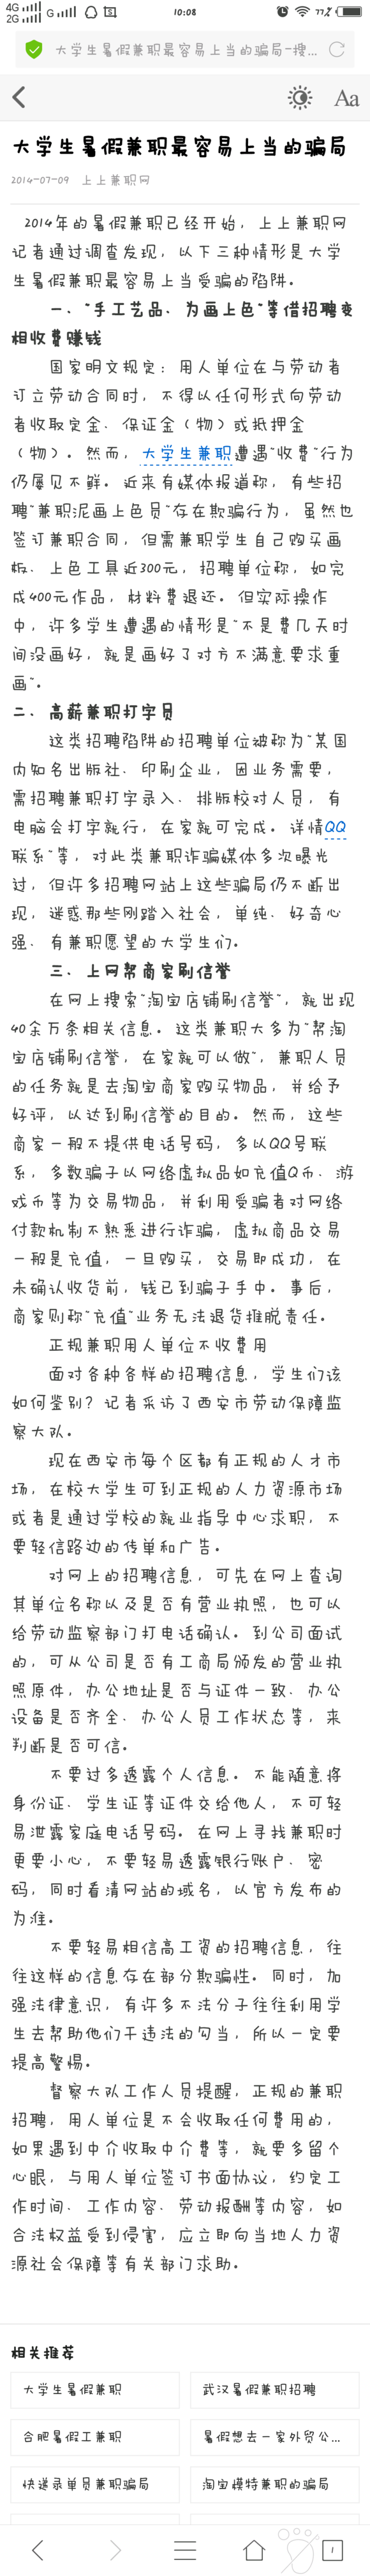 4G 2G G 10:08 77%
大学生暑假兼职最容易上当的骗局-搜...
Aa
大学生暑假兼职最容易上当的骗局
2014-07-09 上上兼职网
2014年的暑假兼职已经开始，上上兼职网
记者通过调查发现，以下三种情形是大学
生暑假兼职最容易上当受骗的陷阱。
一、“手工艺品、为画上色”等借招聘变
相收费赚钱
国家明文规定：用人单位在与劳动者
订立劳动合同时，不得以任何形式向劳动
者收取定金、保证金（物）或抵押金
（物）。然而，大学生兼职遭遇“收费”行为
仍屡见不鲜。近来有媒体报道称，有些招
聘“兼职泥画上色员”存在欺骗行为，虽然也
签订兼职合同，但需兼职学生自己购买画
板、上色工具近300元，招聘单位称，如完
成400元作品，材料费退还。但实际操作
中，许多学生遭遇的情形是“不是费几天时
间没画好，就是画好了对方不满意要求重
画”。
二、高薪兼职打字员
这类招聘陷阱的招聘单位被称为“某国
内知名出版社、印刷企业，因业务需要，
需招聘兼职打字录入、排版校对人员，有
电脑会打字就行，在家就可完成。详情QQ
联系”等，对此类兼职诈骗媒体多次曝光
过，但许多招聘网站上这些骗局仍不断出
现，迷惑那些刚踏入社会，单纯、好奇心
强、有兼职愿望的大学生们。
三、上网帮商家刷信誉
在网上搜索“淘宝店铺刷信誉”，就出现
40余万条相关信息。这类兼职大多为“帮淘
宝店铺刷信誉，在家就可以做”，兼职人员
的任务就是去淘宝商家购买物品，并给予
好评，以达到刷信誉的目的。然而，这些
商家一般不提供电话号码，多以QQ号联
系，多数骗子以网络虚拟品如充值Q币、游
戏币等为交易物品，并利用受骗者对网络
付款机制不熟悉进行诈骗，虚拟商品交易
一般是充值，一旦购买，交易即成功，在
未确认收货前，钱已到骗子手中。事后，
商家则称“充值”业务无法退货推脱责任。
正规兼职用人单位不收费用
面对各种各样的招聘信息，学生们该
如何鉴别？记者采访了西安市劳动保障监
察大队。
现在西安市每个区都有正规的人才市
场，在校大学生可到正规的人力资源市场
或者是通过学校的就业指导中心求职，不
要轻信路边的传单和广告。
对网上的招聘信息，可先在网上查询
其单位名称以及是否有营业执照，也可以
给劳动监察部门打电话确认。到公司面试
的，可从公司是否有工商局颁发的营业执
照原件，办公地址是否与证件一致、办公
设备是否齐全、办公人员工作状态等，来
判断是否可信。
不要过多透露个人信息。不能随意将
身份证、学生证等证件交给他人，不可轻
易泄露家庭电话号码。在网上寻找兼职时
更要小心，不要轻易透露银行账户、密
码，同时看清网站的域名，以官方发布的
为准。
不要轻易相信高工资的招聘信息，往
往这样的信息存在部分欺骗性。同时，加
强法律意识，有许多不法分子往往利用学
生去帮助他们干违法的勾当，所以一定要
提高警惕。
督察大队工作人员提醒，正规的兼职
招聘，用人单位是不会收取任何费用的，
如果遇到中介收取中介费等，就要多留个
心眼，与用人单位签订书面协议，约定工
作时间、工作内容、劳动报酬等内容，如
合法权益受到侵害，应立即向当地人力资
源社会保障等有关部门求助。
相关推荐
大学生暑假兼职 武汉暑假兼职招聘
合肥暑假工兼职 暑假想去一家外贸公...
快递录单员兼职骗局 淘宝模特兼职的骗局
1